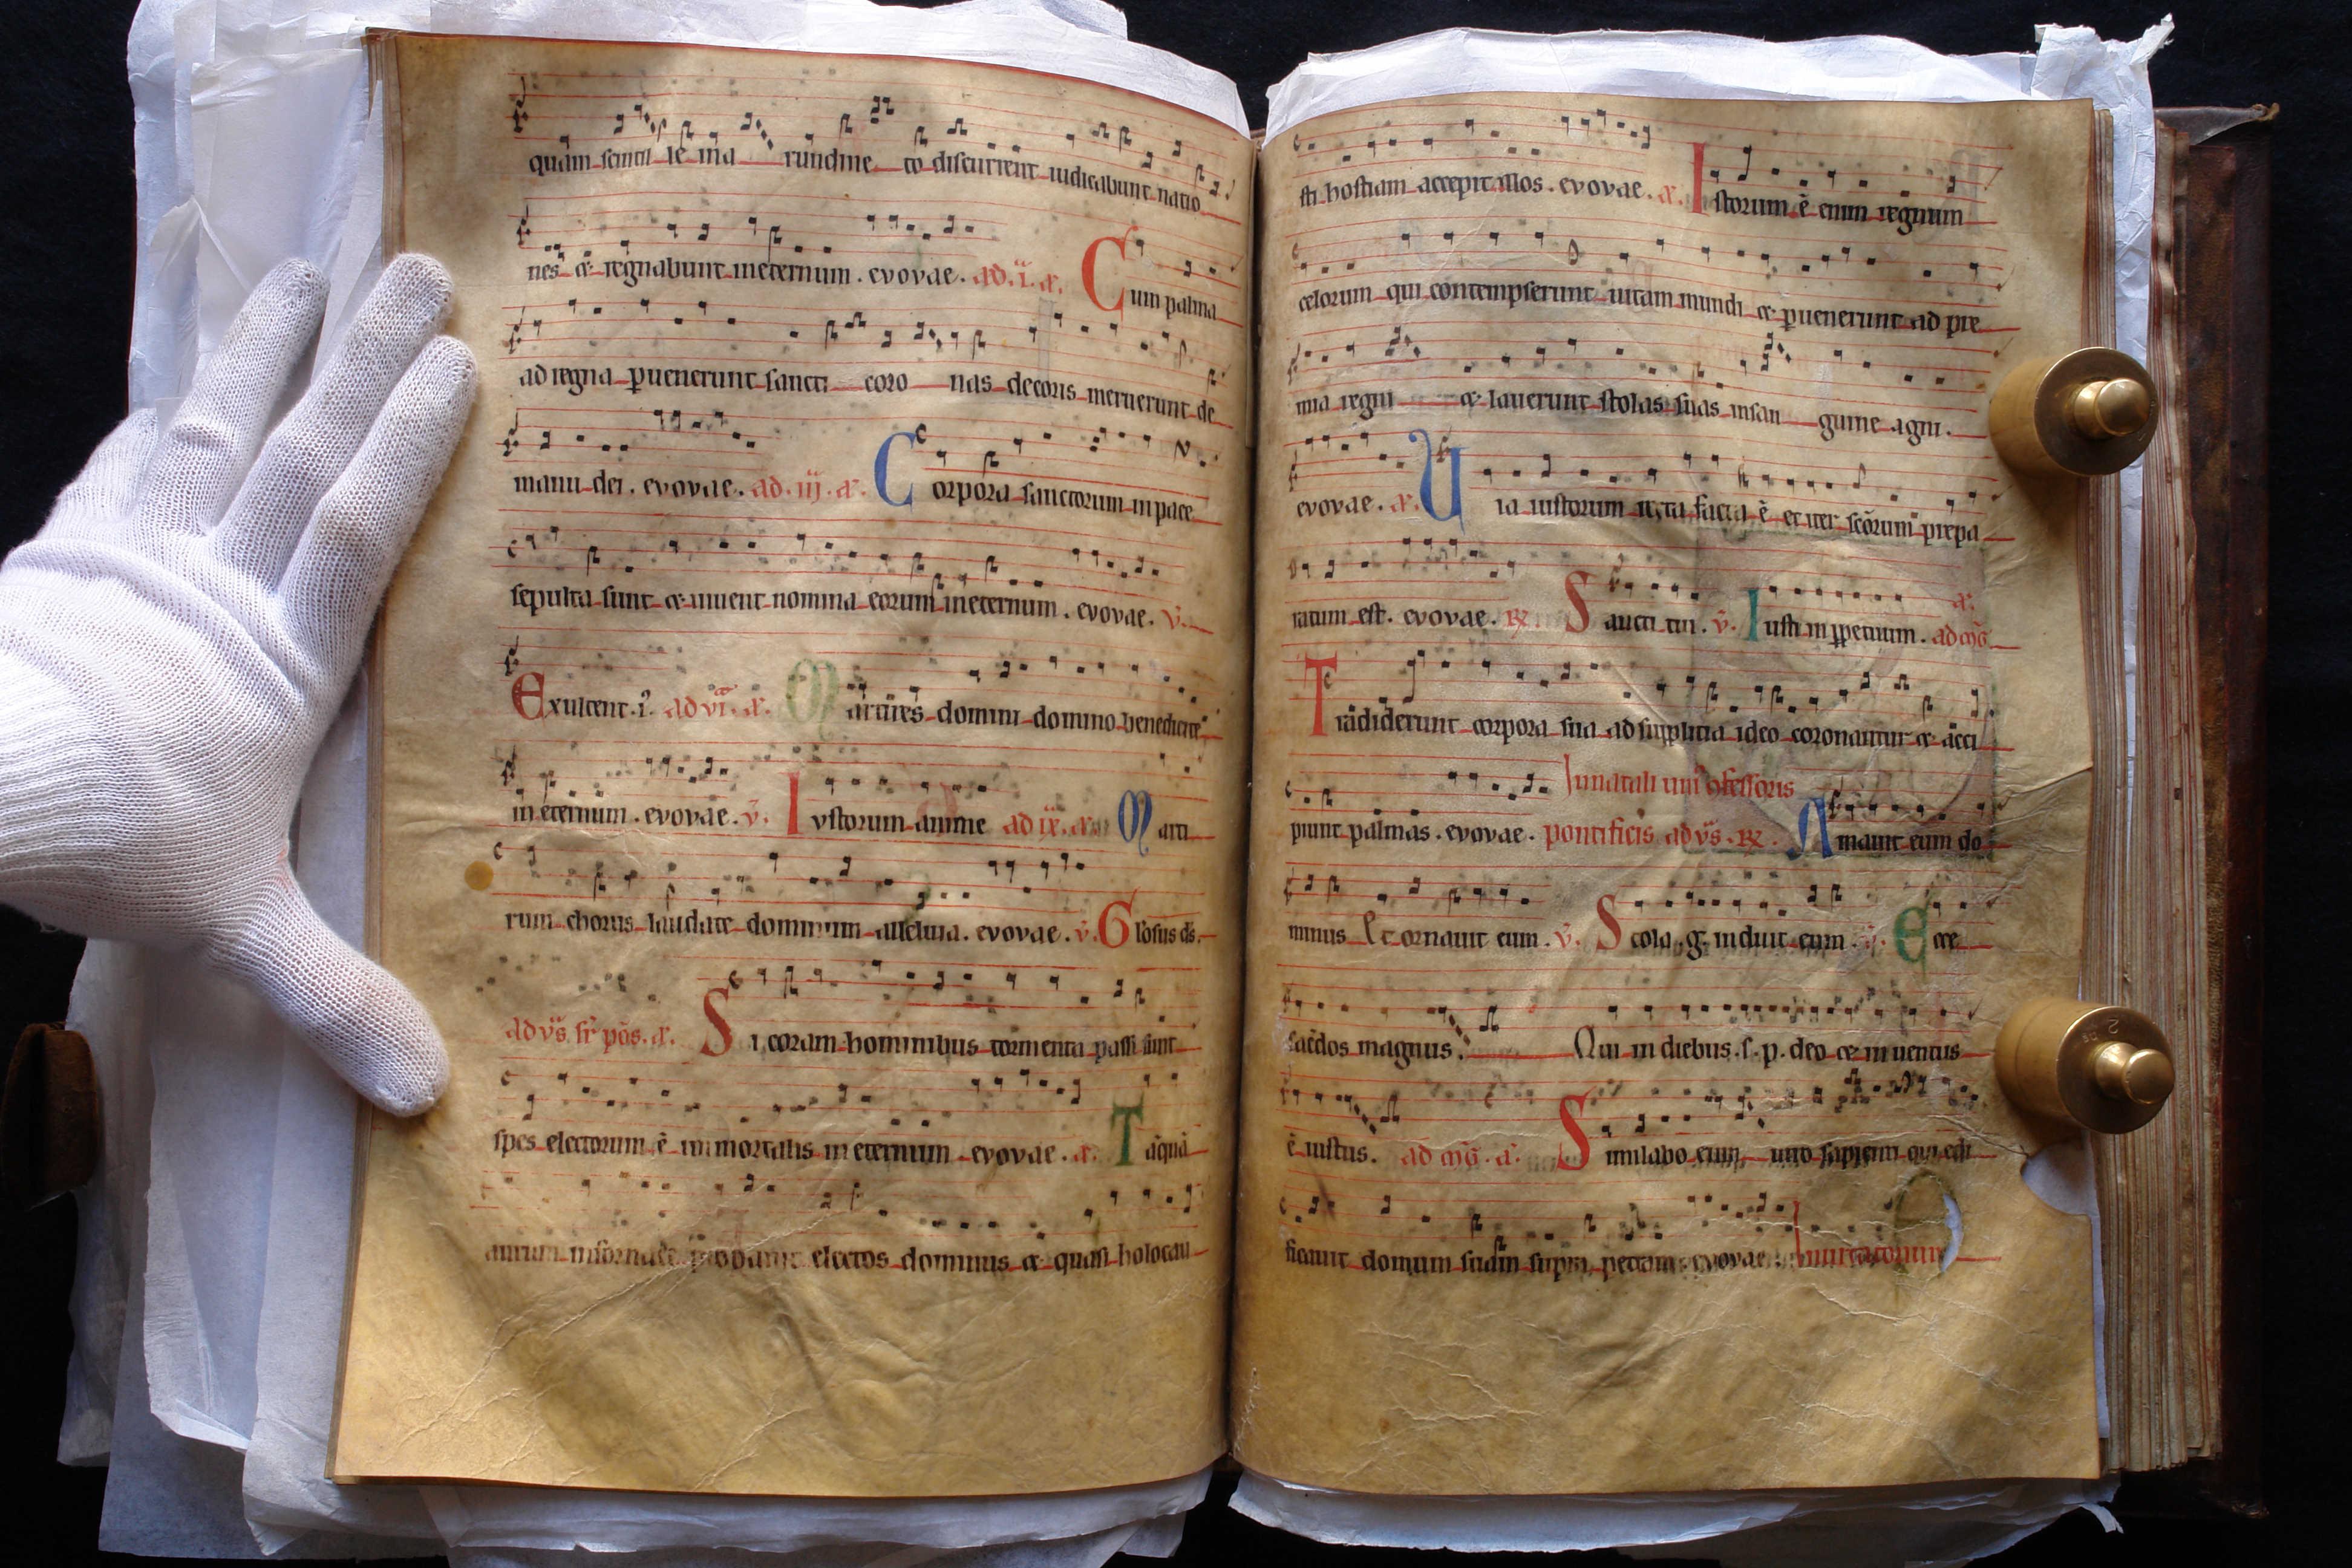 quam scintil le in a rundine to discurrent iudicabunt natio
nes & regnabunt ineternum. evovae. ad .i. a. Cum palma
ad regna puenerunt sancti coro nas decoris meruerunt de
manu dei. evovae. ad .iij. a. Corpora sanctorum in pace
sepulta sunt & uiuent nomina eorum ineternum. evovae. v.
Exultent. i. ad vi. a. Martires domini domino benedicite
in eternum. evovae. v. Iustorum anime ad ix. a. Marti
rum chorus laudate dominum alleluia. evovae. v. Glosus ds.
ad vs sr pos. a. Si coram hominibus tormenta passi sunt
spes electorum ē immortalis in eternum evovae. a. Tāquā
aurum in fornace probauit electos dominus & quasi holocau
sti hostiam accepit illos. evovae. a. Istorum ē enim regnum
celorum qui contempserunt uitam mundi & puenerunt ad pre
mia regni & lauerunt stolas suas insan guine agni.
evovae. a. Uia iustorum recta facta ē et iter scōrum prepa
ratum est. evovae. ℞. Sancti tui. v. Iusti in ppetuum. a. ad mg
Tradiderunt corpora sua ad supplicia ideo coronantur & acci
piunt palmas. evovae. In natali uni ofessoris pontificis ad vs. ℞. Amauit eum do
minus Et ornauit eum. v. Stola .g. induit eum. Ecce
sacdos magnus. Qui in diebus .s. p. deo & inuentus
ē iustus. ad mg. a. Similabo eum uiro sapienti qui edi
ficauit domum suam supra petram evovae.